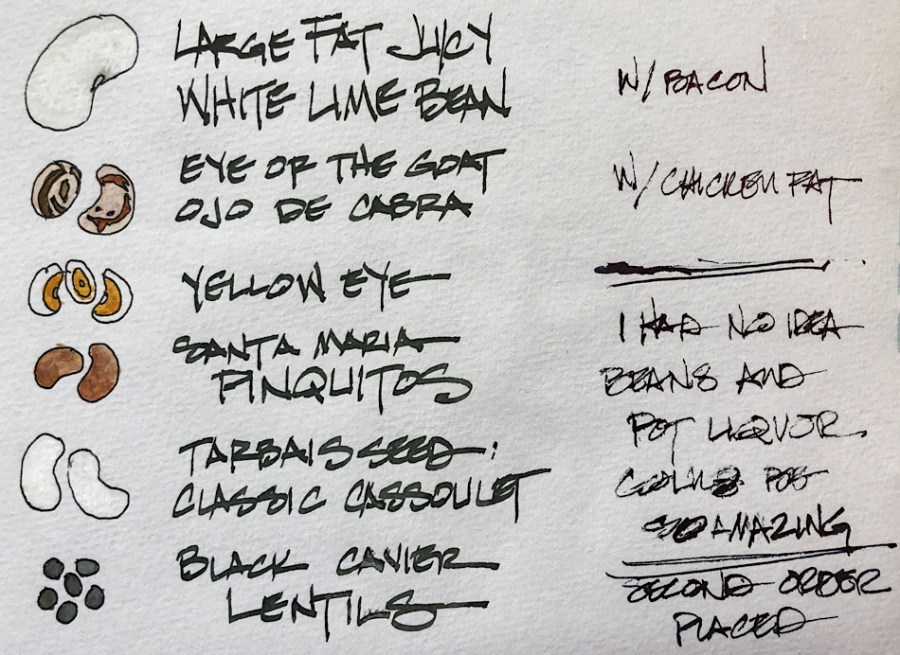 LARGE FAT JUICY
WHITE LIME BEAN
W/ BACON
EYE OF THE GOAT
OJO DE CABRA
W/ CHICKEN FAT
YELLOW EYE
SANTA MARIA
PINQUITOS
TARBAIS SEED:
CLASSIC CASSOULET
BLACK CAVIER
LENTILS
I HAD NO IDEA
BEANS AND
POT LIQUOR
COULD BE
SO AMAZING
SECOND ORDER
PLACED